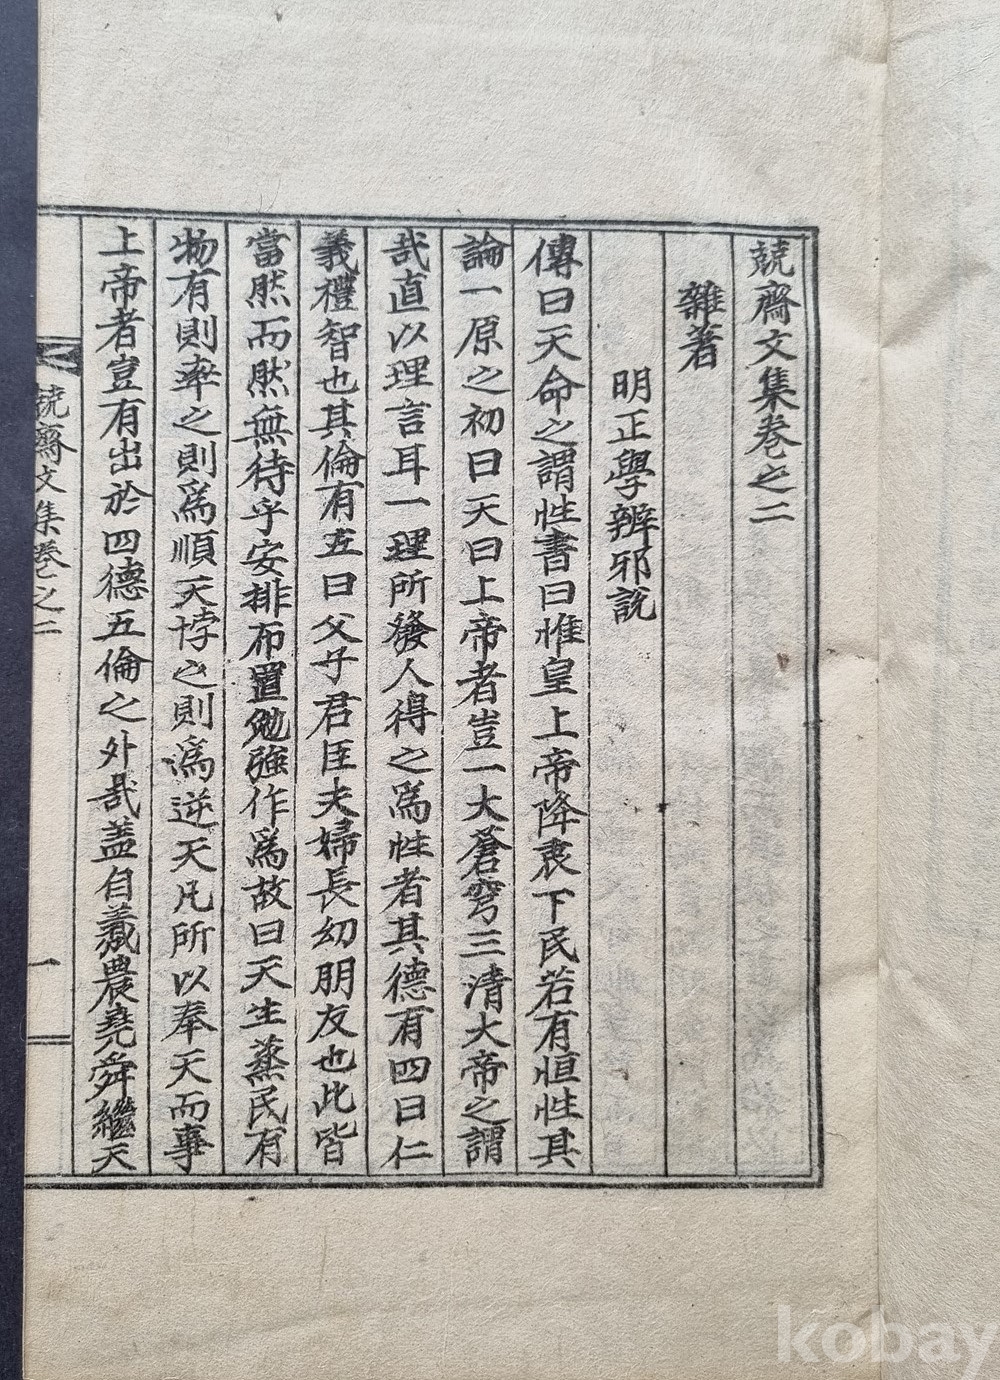 兢齋文集卷之二
雜著
明正學辨邪說
傳曰天命之謂性書曰惟皇上帝降衷下民若有恒性其
論一原之初曰天曰上帝者豈一大蒼穹三清大帝之謂
哉直以理言耳一理所發人得之爲性者其德有四曰仁
義禮智也其倫有五曰父子君臣夫婦長幼朋友也此皆
當然而然無待乎安排布置勉強作爲故曰天生蒸民有
物有則率之則爲順天悖之則爲逆天凡所以奉天而事
上帝者豈有出於四德五倫之外哉盖自羲農堯舜繼天
兢齋文集卷之二
一
kobay